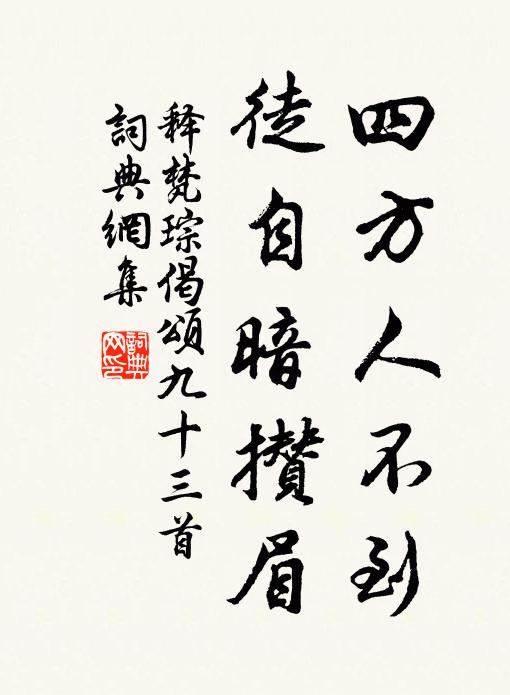 四方人不到
徒自暗攢眉
释梵琮偈頌九十三首
詞典網集
詞典網印